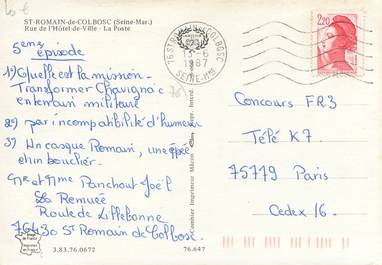 10 €
ST-ROMAIN-de-COLBOSC (Seine-Mar.)
Rue de l'Hôtel-de-Ville - La Poste
5ème épisode
1) Quelle est la mission
Transformer Chavignac
en terrain militaire
2) par incompatibilité d'humeur
3) Un casque Romain, une épée
et un boucher.
Mr et Mme Panchout Joël
La Remuée
Route de Lillebonne
76430 St Romain de Colbosc
3.83.76.0672
76.647
Combier Imprimeur Mâcon
76 ST ROMAIN DE COLBOSC
15-6
1987
SEINE-MME
2,20
Concours FR3
Télé K7
75779 Paris
Cedex 16.